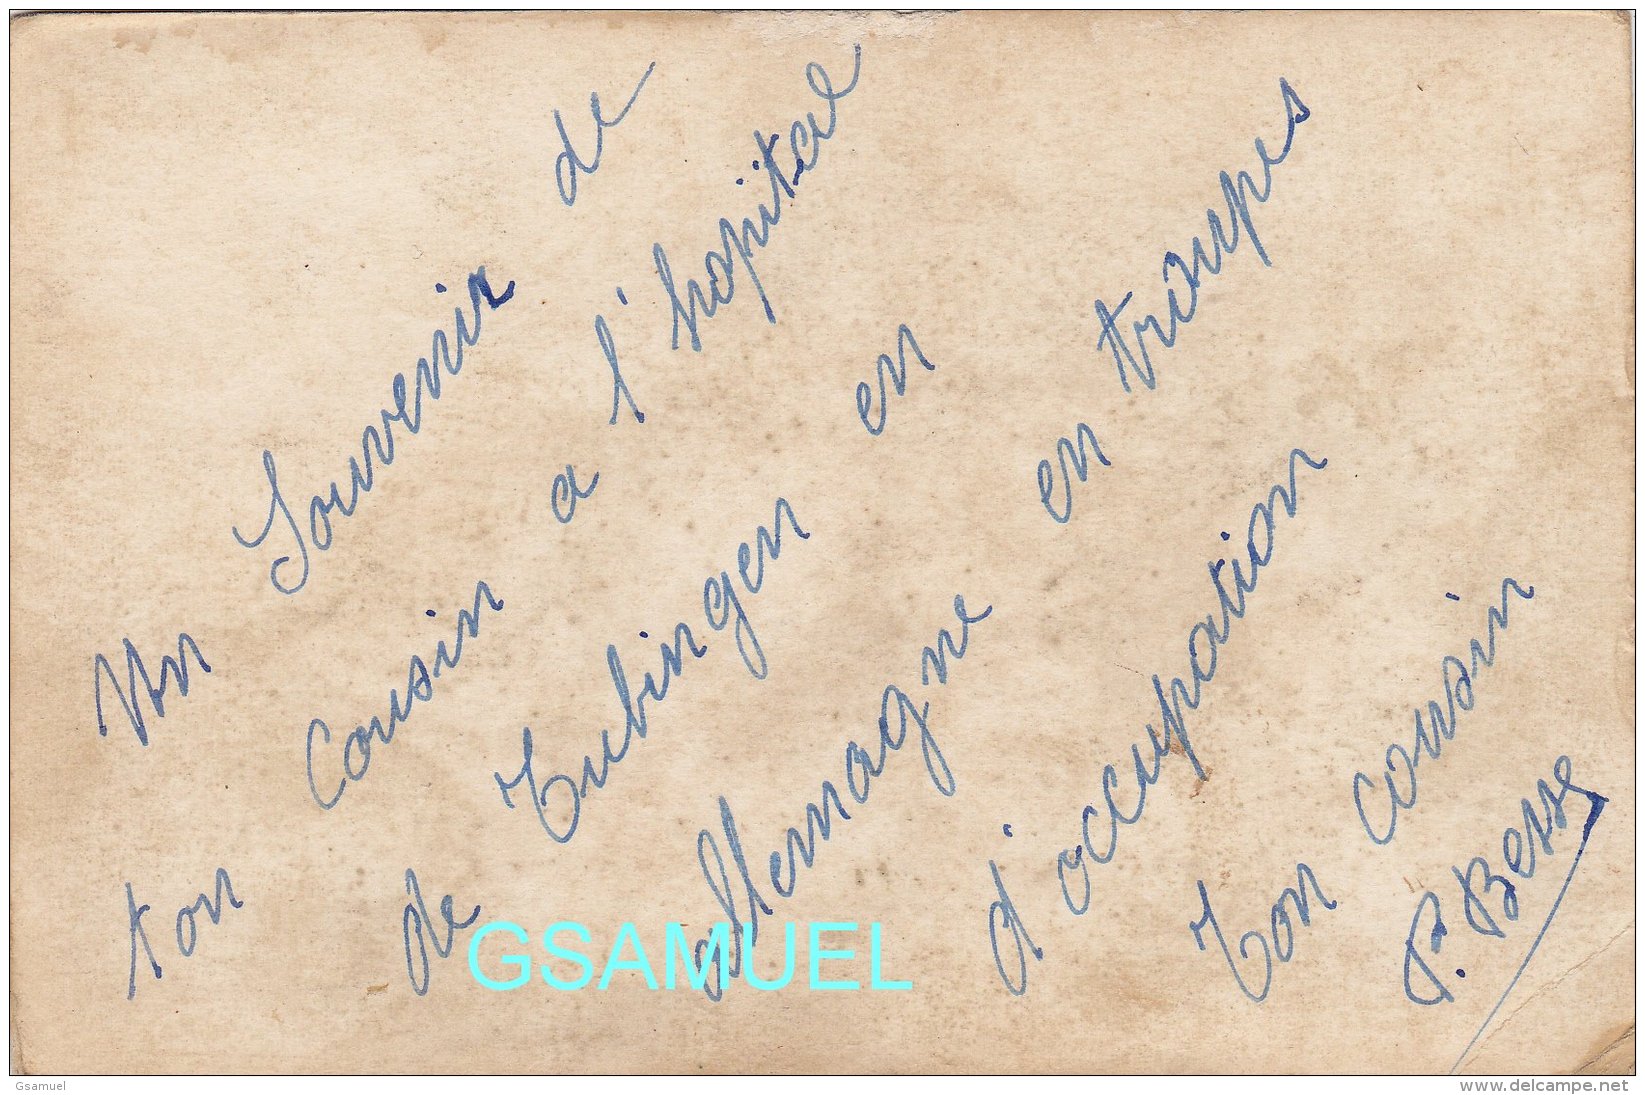 Un Souvenir de
ton Cousin a l'hopital
de Tubingen en
allemagne en troupes
d'occupation
Ton cousin
P. Besse
GSAMUEL
Gsamuel
www.delcampe.net